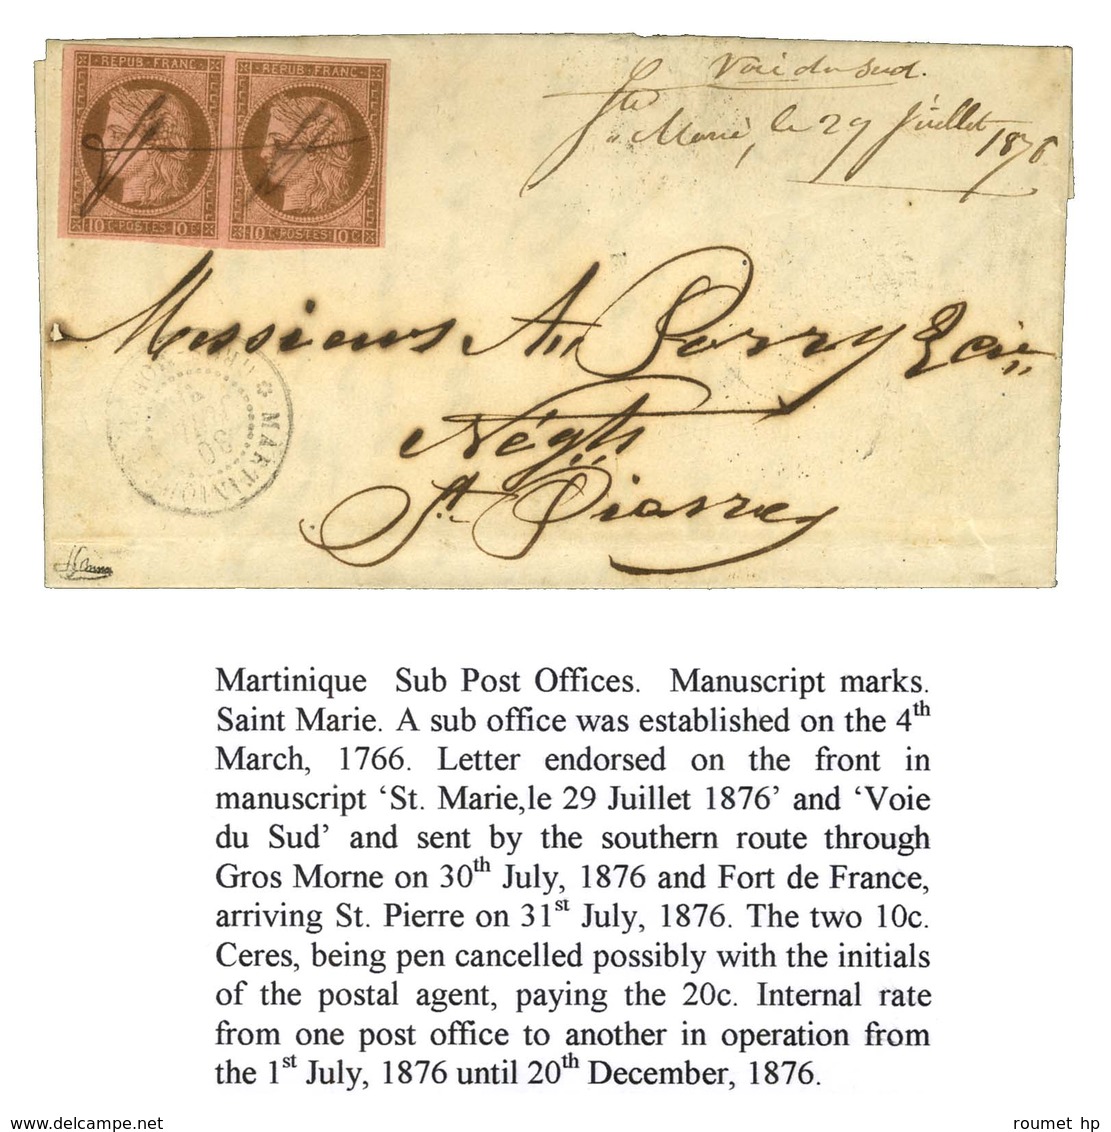 REPUB·FRANC·
REPUB·FRANC·
10 C·POSTES·10 C
10 C·POSTES·10 C
Voie du Sud.
Ste Marie, le 29 Juillet 1876
Messieurs A. Porry & Cie
Négts
St Pierre
MARTINIQUE
30
Martinique Sub Post Offices. Manuscript marks.
Saint Marie. A sub office was established on the 4th
March, 1766. Letter endorsed on the front in
manuscript ‘St. Marie,le 29 Juillet 1876’ and ‘Voie
du Sud’ and sent by the southern route through
Gros Morne on 30th July, 1876 and Fort de France,
arriving St. Pierre on 31st July, 1876. The two 10c.
Ceres, being pen cancelled possibly with the initials
of the postal agent, paying the 20c. Internal rate
from one post office to another in operation from
the 1st July, 1876 until 20th December, 1876.
roumet hp